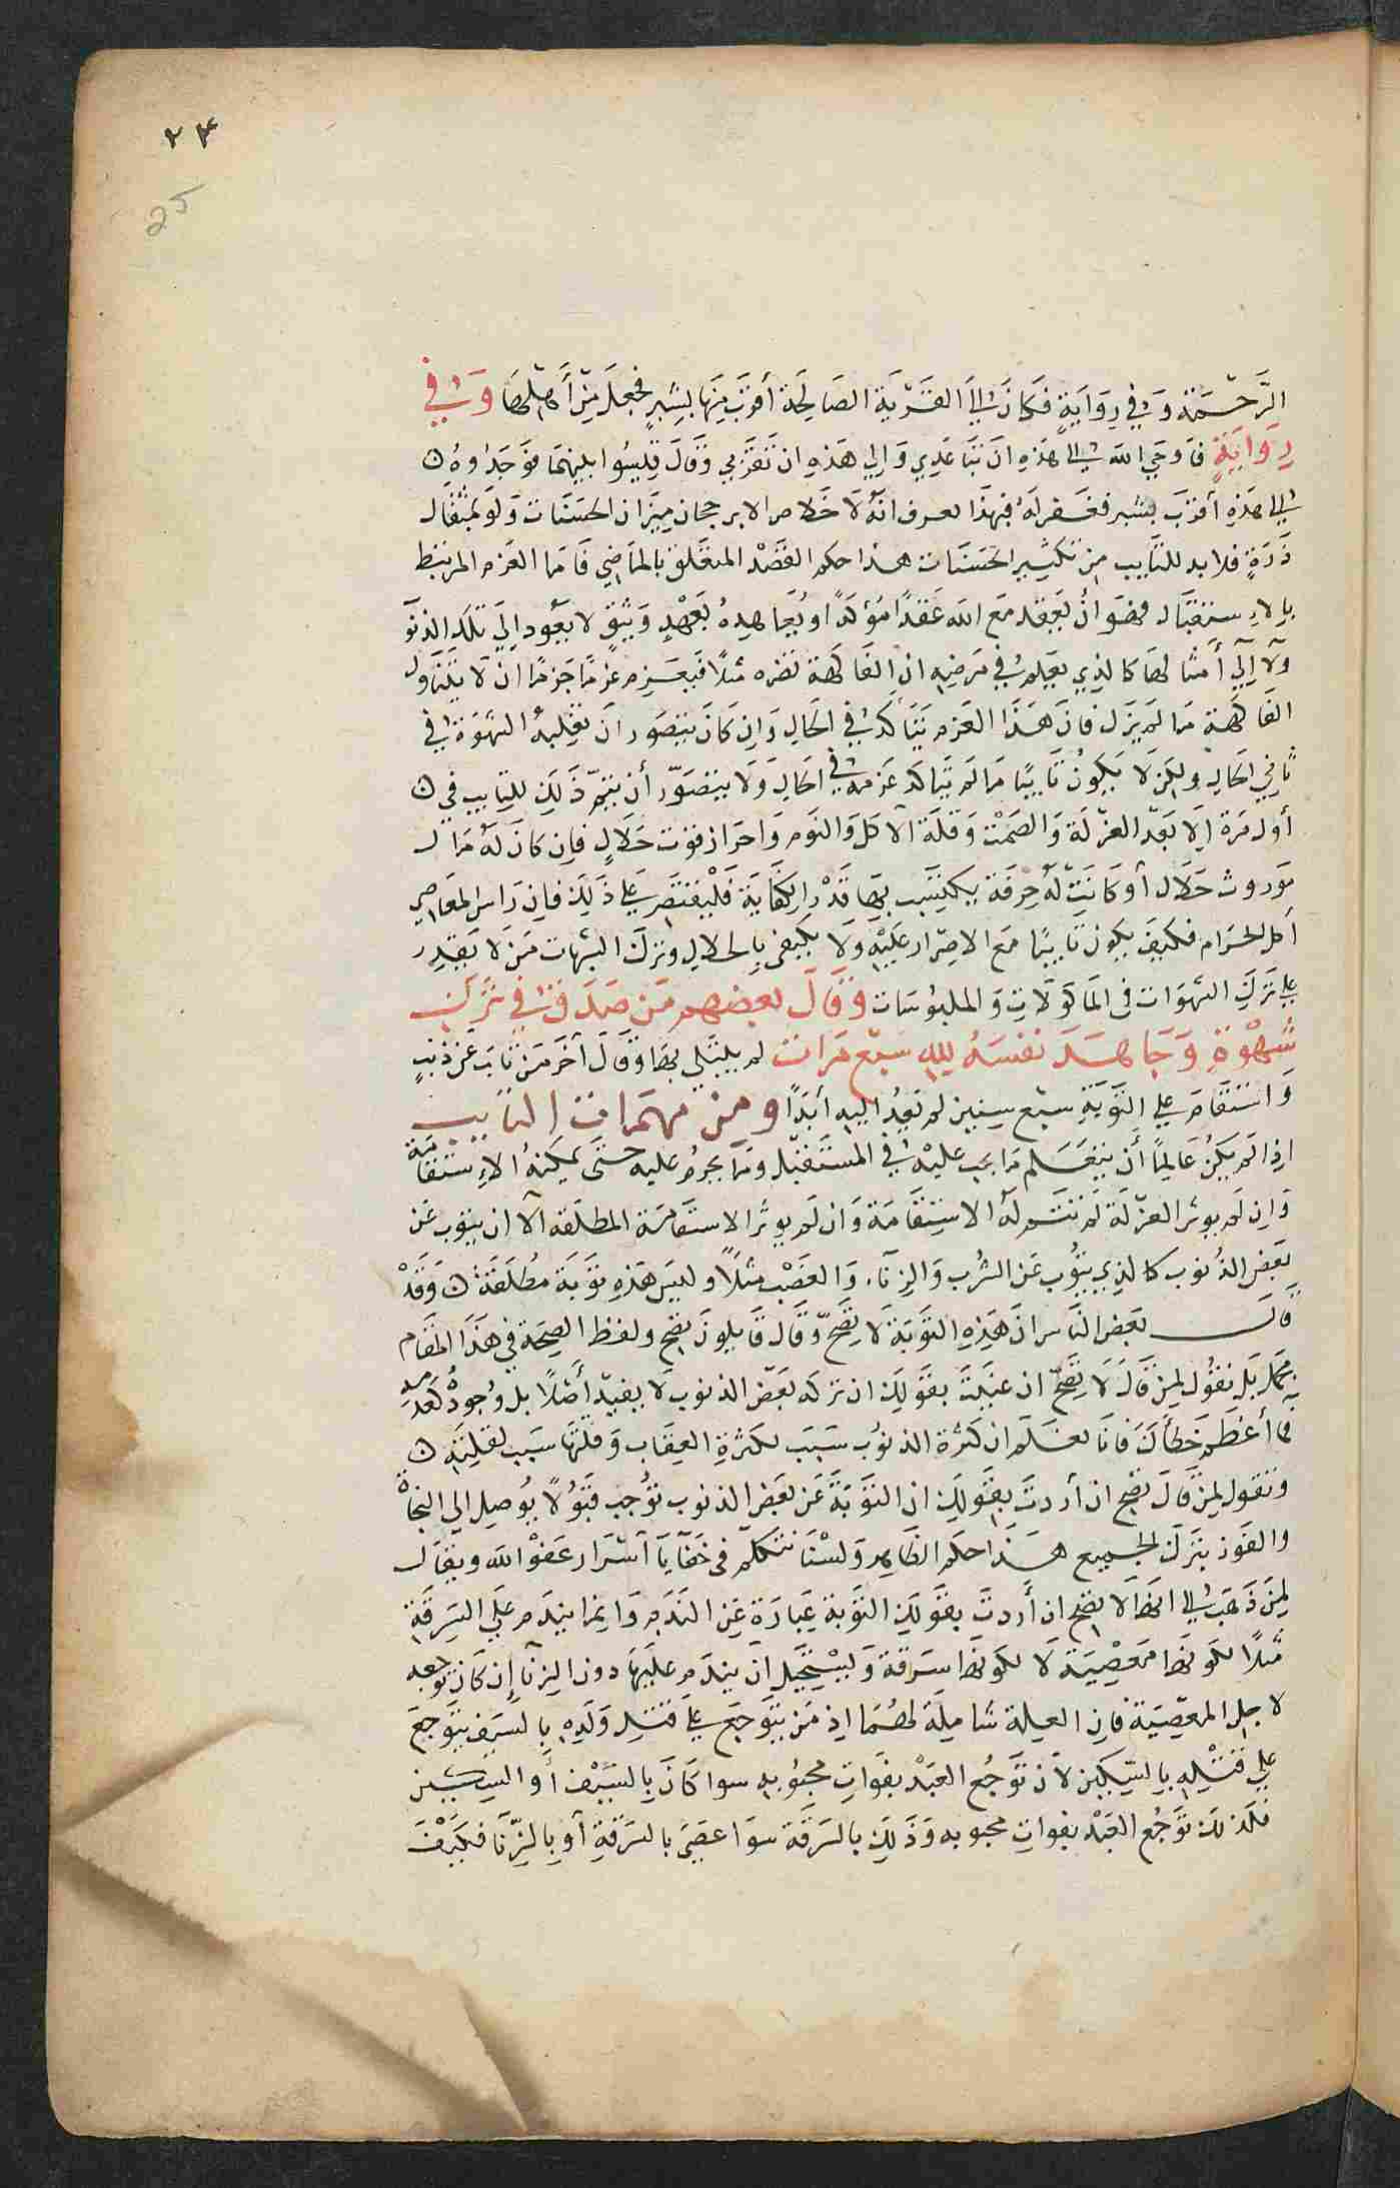 ٢٤
25
الرَّحْمَة وَفي رِوَايَةٍ فكَانَ إلى القَرْيَة الصَالِحَة أقرَبَ مِنهَا بِشِبرٍ فجعلَ مِنْ أَهْلِهَا وَفي
رِوَايَةٍ فاوحَي الله إلى هذِهِ انْ تبَاعَدِي وَالي هَذِهِ ان تَقَرَّبي وَقالَ قِيسُوا بينهمَا فوَجَدُوهُ
إلى هَذِهِ أقرَبَ بشبرٍ فغَفرلَهُ فبهَذا يعرف انَّهُ لَا خَلَاص الا برجحان مِيزَان الحَسَنَات وَلَو بمثقَال
ذَرَةٍ فلا بد للتَايب مِن تكثِير الحَسَنَات هذا حكم القَصْد المتعَلق بالمَاضِي فَامَا العَزم المرتبَط
بِالاِستقبَال فهوَ انْ يعقد مَع الله عَقدًا مُؤكدًا وَيُعَاهِدهُ بعَهْدٍ وَثيقٍ لا يَعُود الي تلك الذنو
وَلا إلي أمثَالهَا كالذِي يعلم في مَرضِهِ ان الفَاكهَة تضره مَثلًا فيعزِم عَزمًا جَزمًا ان لَا يَتنَاول
الفَاكهَة مَا لم يزَل فان هَذَا العَزم يَتَاكدُ في الحَالِ وَان كَانَ يتصَور ان تَغلبهُ الشهوَة في
ثاني الحَالِ ولكن لَا يَكونُ تَايبًا مَا لَم يَتَاكد عَزمه في الحَالِ وَلَا يتصَوّر أن يتمّ ذَلِك للتَايب في
أول مَرة إلا بَعْد العزلَة وَالصَمْت وَقلَة الاكل وَالنَوم وَاحرَاز قوت حَلَالٍ فإن كانَ لَهُ مَال
مَورُوث حَلَال أو كَانَتْ لَهُ حِرفَة يكتسِب بهَا قَدْر الكفَايَة فَلْيقتصِر عَلي ذَلِك فاِن رَاس المعَاصِي
أكل الحَرَام فكيفَ يكون تَايبًا مَع الاصرَار عَليْهِ وَلَا يكتفى بِالحلالِ وترك الشبهَات مَن لَا يَقدِر
علي تَرَكِ الشهَوَات في المَاكولَاتِ وَالملبُوسَات وقَالَ بعضهم مَن صَدَقَ في تَرَكِ
شَهْوَةِ وَجَاهَدَ نفسَهُ لله سَبْع مَرات لم يبتلى بهَا وَقَالَ آخَر مَن تَابَ عَن ذنبٍ
وَاستقَامَ علي التَوبَةِ سبع سِنين لم يعُد اليهِ أبَدًا ومِن مهمَات التايب
اذا لم يَكنُ عَالِمًا أن يتعَلم مَا يجب عليْهِ في المسْتَقبَل ومَا يحرمُ عليه حَتَى يمكنهُ الاِستقَامَة
وَان لَم يوثر العزلَة لَم تتم لَهُ الاستِقَامَة وَان لَم يوثر الاستقَامَة المطلقه الا ان يتوب عَن
بعَض الذنوب كالذِي يتوُب عَن الشرب وَالزِنَآء وَالغَصْب مثلًا وليسَ هَذِهِ تَوبَة مُطلَقَة وَقَدْ
قَالَ بعَض النَاس انَ هَذِهِ التَوَبَة لَا تَصحّ وَقَالَ قَايلونَ تصح ولفظ الصِحَة في هَذَا المقَام
مجمَل بَل نقُول لِمَن قَالَ لَا تَصِحّ ان عنَيتَ بقَولِك ان تركه بعَض الذنوب لا يفيد أصْلًا بل وُجودُهُ كعَدَمِه
فمَا أعْظَم خَطَأكَ فانَا نعْلَم ان كثْرَة الذنوُب سَبَب لكثرَةِ العِقَاب وَقلتهَا سَبَب لقلِتَه
ونقول لِمَن قَالَ تصح ان أردتَ بقَولِك ان التوَبَةَ عَن بَعَض الذنوب تُوجِب قبُولًا يُوصِل الي النجَاة
والفَوز بتَرَك الجميع هَذَا حكم الظَاهِر وَلسْنَا نتَكلَم في خفَايَا أسْرَار عَفو الله ويقَال
لِمَن ذَهَبَ إلى انهَا لَا تصح ان أَردتَ بقَولِك التَوْبة عِبَارَة عَن النَدَم وَانما يندَم عَلي السَرِقَة
مَثلًا لكونهَا مَعصِيَة لَا لكونهَا سَرقة وَيَسْتحِيل أن يندَم عليهَا دون الزِنَا إن كَان توجعه
لاجل المعصِيَة فان العلة شَامِلَة لهُمَا اذ مَن يتوَجَع علي قتل وَلَدِهِ بِالسَيف يتَوَجعَ
علي قَتْلِهِ بِالسِّكِين لأن تَوَجُع العَبْد بفوَاتِ محبُوبه سوا كَانَ بِالسَيْف أو السكِين
فكذلك تَوَجُع العَبْد بفوَاتِ محبوبه وَذَلِك بالسَرَقَة سوَا عصَيَ بالسَرَقَةِ أو بِالزِّنَا فكَيْفَ